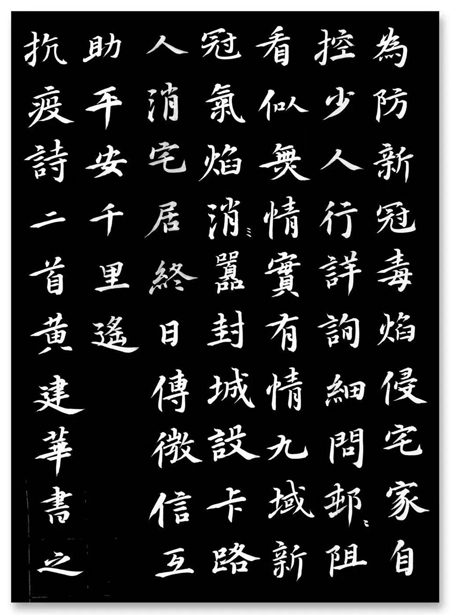 為防新冠毒焰侵宅家自
控少人行詳詢細問邨〻阻
看似無情實有情九域新
冠氣焰消囂封城設卡路
人消宅居終日傳微信互
助平安千里遙
抗疫詩二首黃建華書之